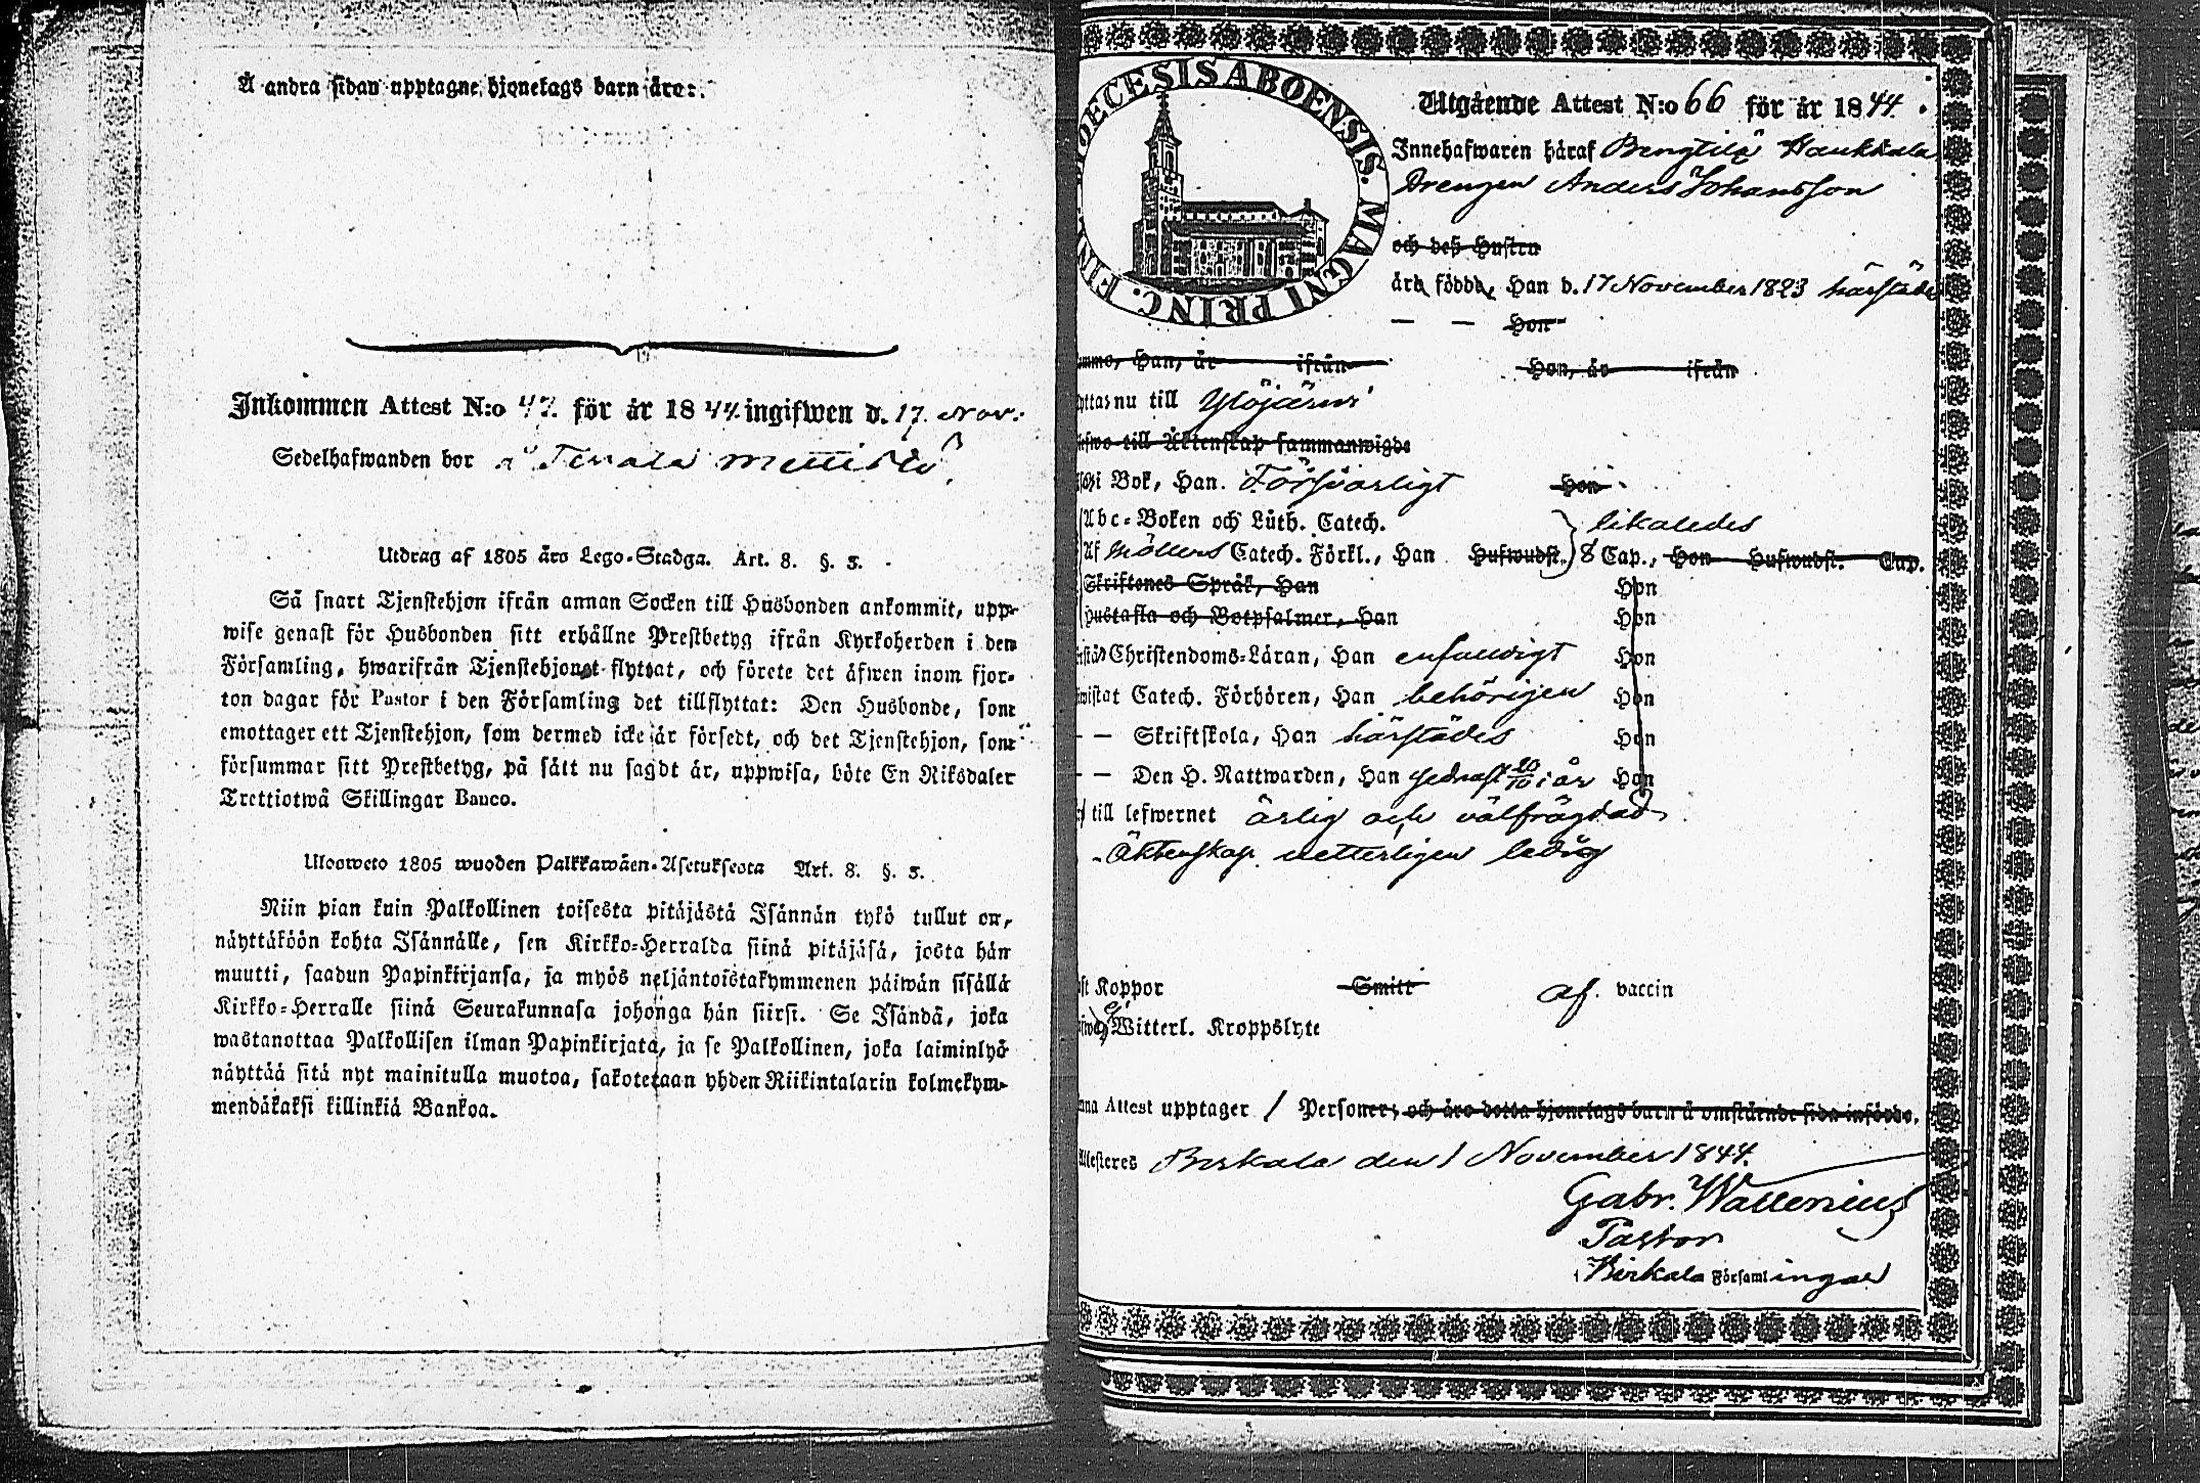 Å andra sidan upptagne hjonelags barn äro:
Inkommen Attest N:o 47. för år 1844. ingifwen d. 17. Nov:
Sedelhafwanden bor
Utdrag af 1805 års Lego-Stadga. Art. 8. §. 3.
Så snart Tjenstehjon ifrån annan Socken till Husbonden ankommit, upp-
wise genast för Husbonden sitt erhållne Prestbetyg ifrån Kyrkoherden i den
Församling, hwarifrån Tjenstehjonet flyttat, och förete det äfwen inom fjor-
ton dagar för Pastor i den Församling det tillflyttat: Den Husbonde, som
emottager ett Tjenstehjon, som dermed icke är försedt, och det Tjenstehjon, som
försummar sitt Prestbetyg, på sätt nu sagdt är, uppwisa, böte En Riksdaler
Trettiotwå Skillingar Banco.
Ulosweto 1805 wuoden Palkkawäen-Asetuksesta Art. 8. §. 3.
Niin pian kuin Palkollinen toisesta pitäjästä Isännän tykö tullut on,
näyttäköön kohta Isännälle, sen Kirkko-Herralda siinä pitäjäsä, josta hän
muutti, saadun Papinkirjansa, ja myös neljäntoistakymmenen päiwän sisällä
Kirkko-Herralle siinä Seurakunnasa johonga hän siirsi. Se Isändä, joka
wastanottaa Palkollisen ilman Papinkirjata, ja se Palkollinen, joka laiminlyö
näyttää sitä nyt mainitulla muotoa, sakotetaan yhden Riikintalarin kolmekym-
mendäkaksi killinkiä Bankoa.
OECESIS ABOENSIS. MAGNI PRINC. FIN
Utgående Attest N:o 66 för år 1844.
Innehafwaren häraf Bengtilä Haukkala
Drengen Anders Johansson
och deß Hustru
äro födde, Han d. 17 November 1823 härstädes
— — Hon
Han, är ifrån Hon, är ifrån
nu till Ylöjärvi
till Äktenskap sammanwigde
i Bok, Han. Försvarligt Hon
Abc-Boken och Luth. Catech. likaledes
Af Möllers Catech. Förkl., Han Hufwudst. 8 Cap., Hon Hufwudst. Cap.
Skriftenes Språk, Han Hon
Hustafla och Botpsalmer, Han Hon
Christendoms-Läran, Han enfaldigt Hon
Catech. Förhören, Han behörigen Hon
— — Skriftskola, Han härstädes Hon
— — Den H. Nattwarden, Han sednast 20/10 i år Hon
till lefwernet ärlig och välfrägdad
Äktenskap. ledig
Koppor Smitt af. vaccin
ej Witterl. Kroppslyte
Attest upptager 1 Personer; och äro detta hjonelags barn å omstående sida införde.
Birkala den 1 November 1844.
Gabr. Wallenius
Pastor
i Birkala Församlingar